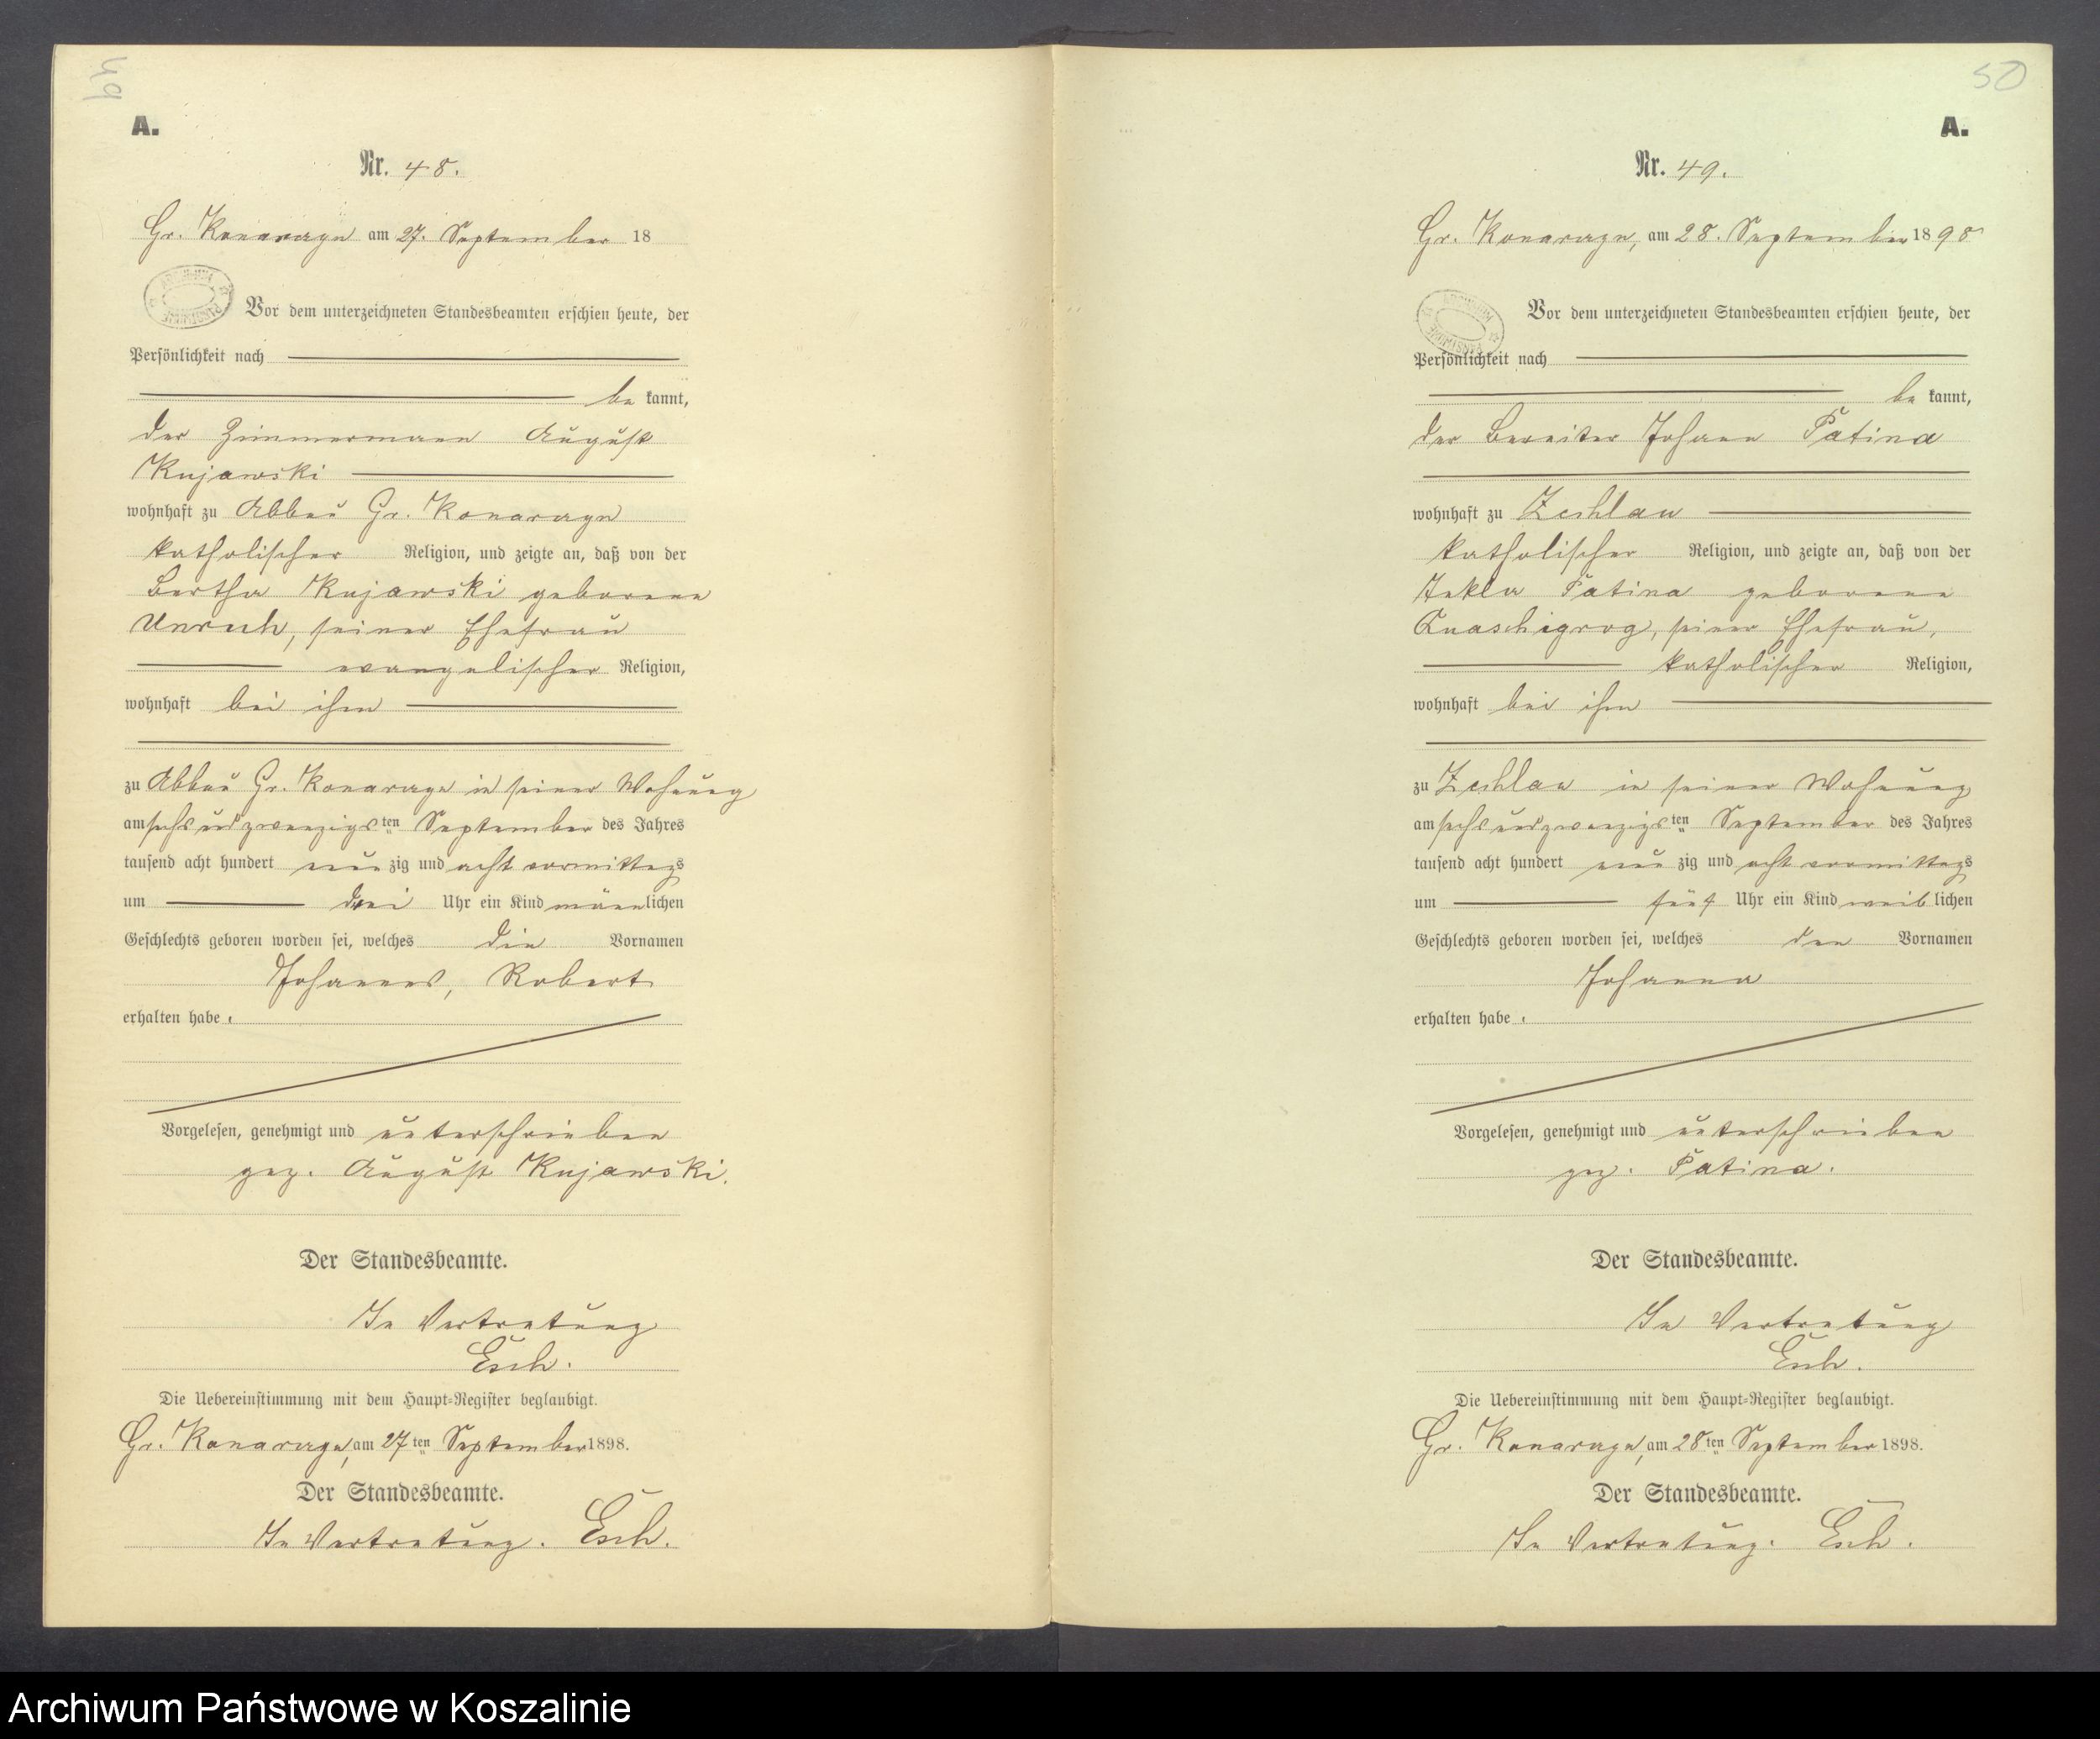 49
A.
Nr. 48.
Gr. Konarczyn am 27. September 18
Vor dem unterzeichneten Standesbeamten erschien heute, der
Persönlichkeit nach
be kannt,
der Zimmermann August
Kujawski
wohnhaft zu Abbau Gr. Konarczyn
katholischer Religion, und zeigte an, daß von der
Bertha Kujawski geborene
Unruh, seiner Ehefrau
evangelischer Religion,
wohnhaft bei ihm
zu Abbau Gr. Konarczyn in seiner Wohnung
am sechs und zwanzigsten September des Jahres
tausend acht hundert neun zig und acht vormittags
um drei Uhr ein Kind männ lichen
Geschlechts geboren worden sei, welches die Vornamen
Johannes, Robert
erhalten habe.
Vorgelesen, genehmigt und unterschrieben
gez. August Kujawski.
Der Standesbeamte.
In Vertretung
Esch.
Die Uebereinstimmung mit dem Haupt-Register beglaubigt.
Gr. Konarczyn, am 27ten September 1898.
Der Standesbeamte.
In Vertretung. Esch.
50
A.
Nr. 49.
Gr. Konarczyn, am 28. September 1898
Vor dem unterzeichneten Standesbeamten erschien heute, der
Persönlichkeit nach
be kannt,
der Bereiter Johann Patina
wohnhaft zu Zechlau
katholischer Religion, und zeigte an, daß von der
Tekla Patina geborene
seiner Ehefrau,
katholischer Religion,
wohnhaft bei ihm
zu Zechlau in seiner Wohnung
am sechs und zwanzigsten September des Jahres
tausend acht hundert neun zig und acht vormittags
um fünf Uhr ein Kind weib lichen
Geschlechts geboren worden sei, welches den Vornamen
Johanna
erhalten habe.
Vorgelesen, genehmigt und unterschrieben
gez. Patina.
Der Standesbeamte.
In Vertretung
Esch.
Die Uebereinstimmung mit dem Haupt-Register beglaubigt.
Gr. Konarczyn, am 28ten September 1898.
Der Standesbeamte.
In Vertretung. Esch.
Archiwum Państwowe w Koszalinie